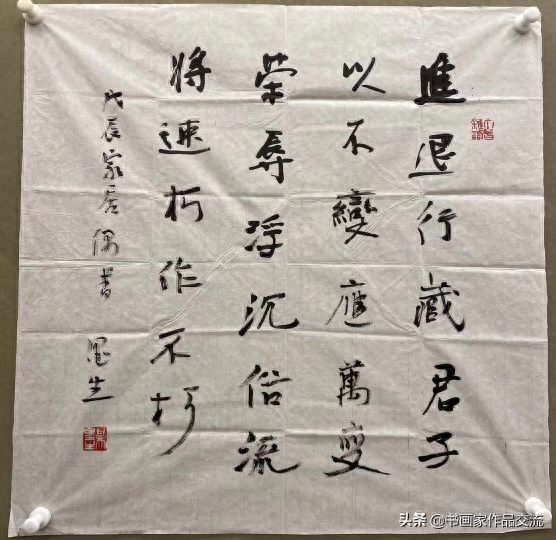 進退行藏君子
以不變應萬変
榮辱浮沉俗流
將速朽作不朽
戊辰家居偶書 墨生
头条 @书画家作品交流